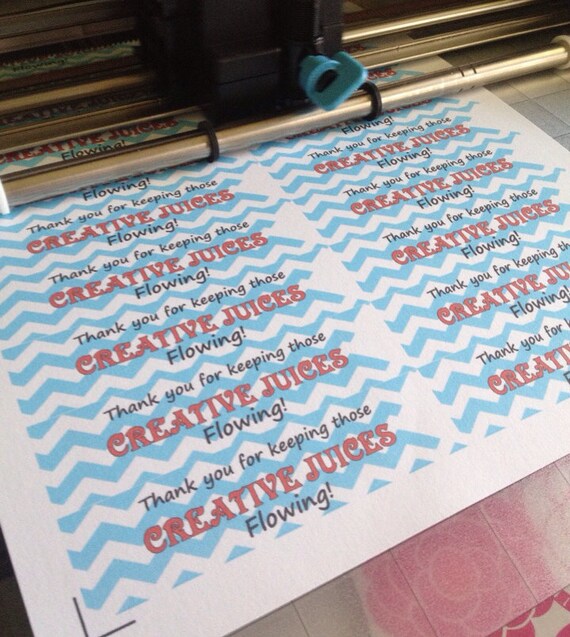 CREATIVE JUICES
Flowing!
Flowing!
Thank you for keeping those
CREATIVE JUICES
Flowing!
Thank you for keeping those
CREATIVE JUICES
Flowing!
Thank you for keeping those
CREATIVE JUICES
Flowing!
Thank you for keeping those
CREATIVE JUICES
Flowing!
Thank you for keeping those
CREATIVE JUICES
Flowing!
Flowing!
Thank you for keeping those
CREATIVE JUICES
Flowing!
Thank you for keeping those
CREATIVE JUICES
Flowing!
Thank you for keeping those
CREATIVE JUICES
Flowing!
Thank you for keeping
CREATIVE JUICES
Flowing!
Thank you for
CREATIVE